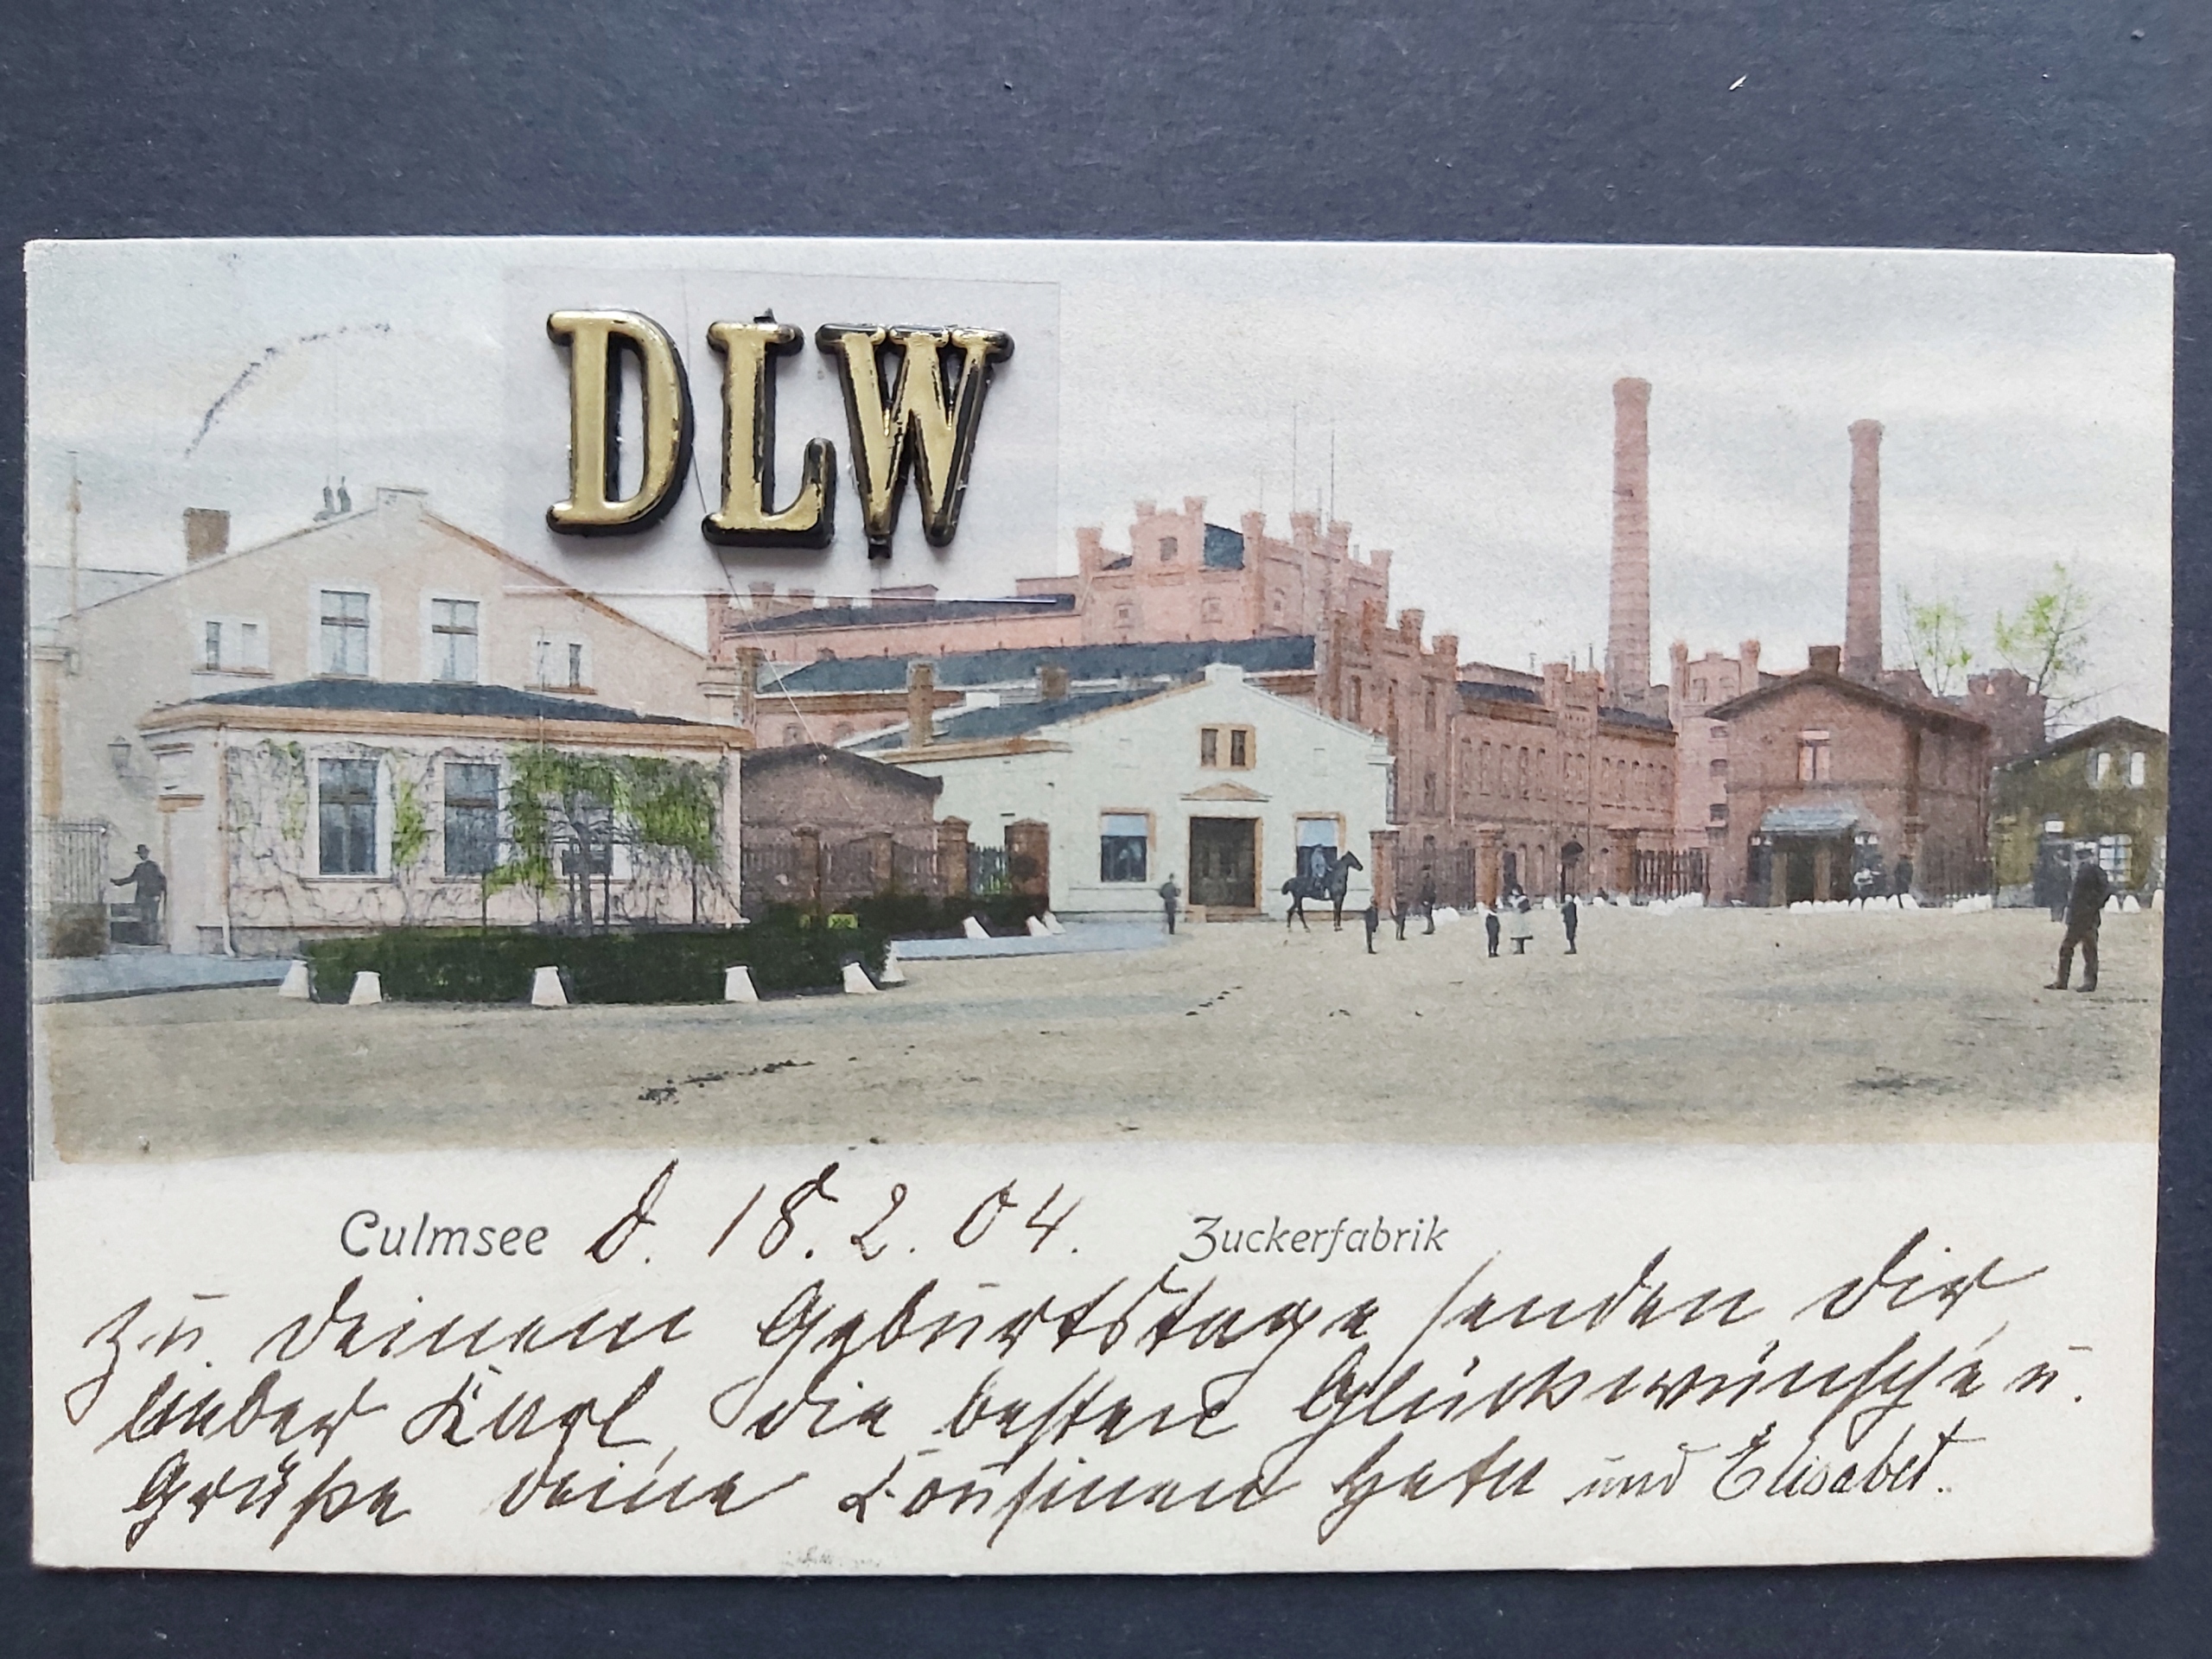 DLW
Culmsee d. 18.2.04. Zuckerfabrik
Zu deinem Geburtstage senden dir,
lieber Karl, die besten Glückwünsche u.
Grüße deine Kousinen und Elisabet.